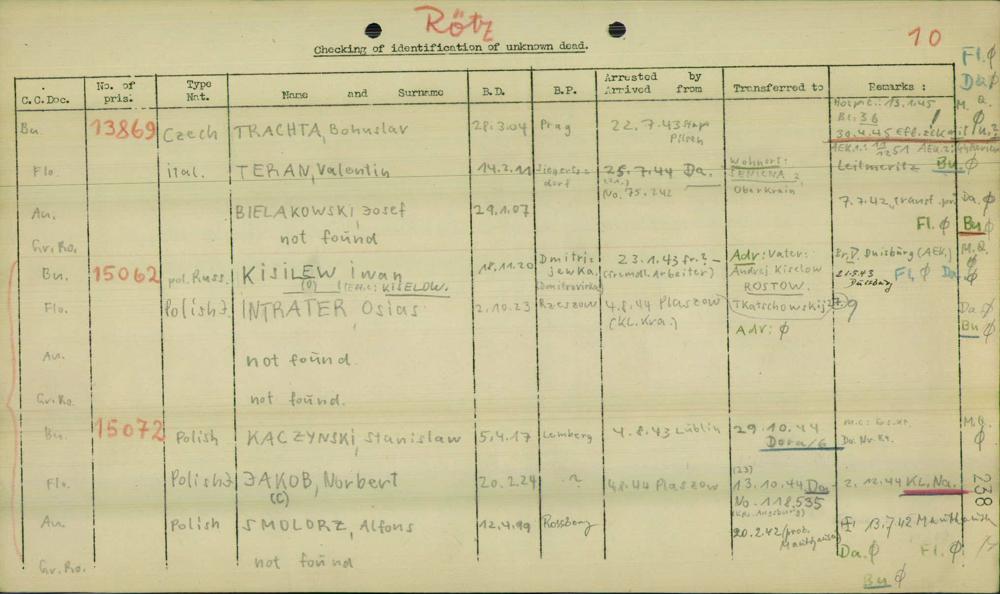 Rötz
10
Checking of identification of unknown dead.
C.C.Doc. No. of pris. Type Nat. Name and Surname B.D. B.P. Arrested by Arrived from Transferred to Remarks :
Fl. ϕ
Da ϕ
Bu. 13869 Czech TRACHTA, Bohuslav 28.3.04 Prag 22.7.43 Stapo Pilsen
13.1.45
Bl: 36
30.4.45
M.Q.
Flo. ital. TERAN, Valentin 14.2.11 25.7.44 Da. No. 75.242
Wohnort:
Oberkrain
Leitmeritz Bu ϕ
Au. BIELAKOWSKI, Josef 29.1.07
7.7.42
Da. ϕ
Gr.Ro. not found
Fl. ϕ Bu ϕ
Bu. 15062 pol. Russ. KISILEW, iwan (O) KISELOW. 18.11.20 Dmitrijewka 23.1.43
Adr: Vater:
Andrej Kiselow
ROSTOW.
Tkatschowskij 27
Duisburg (AEK.)
21.5.43 Duisburg
Fl, ϕ Da
M.Q.
ϕ
Flo. Polish J INTRATER, Osias 2.10.23 Rzeszow 4.8.44 Plaszow (KL. Kra.)
Adr: ϕ
Da. ϕ
Bu ϕ
Au. not found.
Gr.Ro. not found.
Bu. 15072 Polish KACZYNSKI, Stanislaw 5.4.17 Lemberg 4.8.43 Lublin 29.10.44 Dora/G
M.Q.
ϕ
Flo. Polish J JAKOB, Norbert (C) 20.2.24 ? 4.8.44 Plaszow
(23)
13.10.44 Da
No. 118.535
2.12.44 KL. Na.
Au. Polish SMOLORZ, Alfons 12.4.99 Rossberg 20.2.42 (prob. Mauthausen) 13.7.42 Mauthausen
Gr.Ro. not found
Da. ϕ Fl. ϕ
Bu ϕ
238